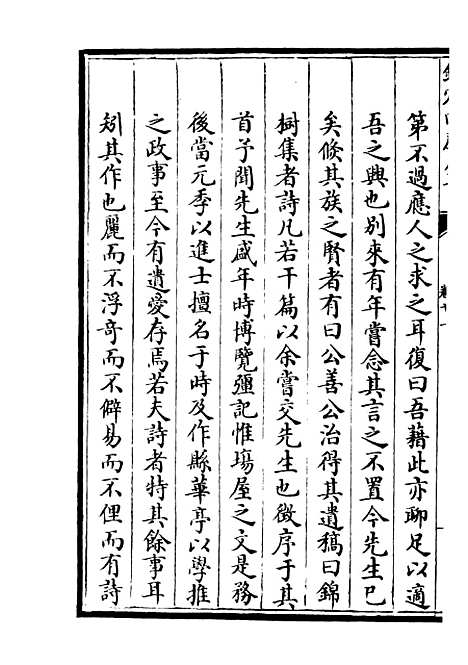 第不過應人之求之耳復曰吾藉此亦聊足以適
吾之興也别來有年嘗念其言之不置今先生已
矣倐其族之賢者有曰公善公治得其遺稿曰錦
樹集者詩凡若干篇以余嘗交先生也徴序于其
首予聞先生盛年時博覽彊記惟塲屋之文是務
後當元季以進士擅名于時及作縣華亭以學推
之政事至今有遺愛存焉若夫詩者特其餘事耳
矧其作也麗而不浮竒而不僻易而不俚而有詩